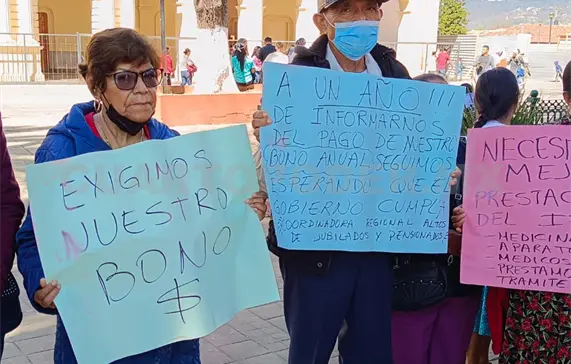 EXIGIMOS
NUESTRO
BONO
$
A UN AÑO!!!
DE INFORMARNOS
DEL PAGO DE NUESTRO
BONO ANUAL SEGUIMOS
ESPERANDO QUE EL
GOBIERNO CUMPLA
COORDINADORA REGIONAL ALTOS
DE JUBILADOS Y PENSIONADOS
PRESTAC
DEL I
- MEDICINA
- APARAT
- MEDICOS
- PRESTAMO
TRAMITE